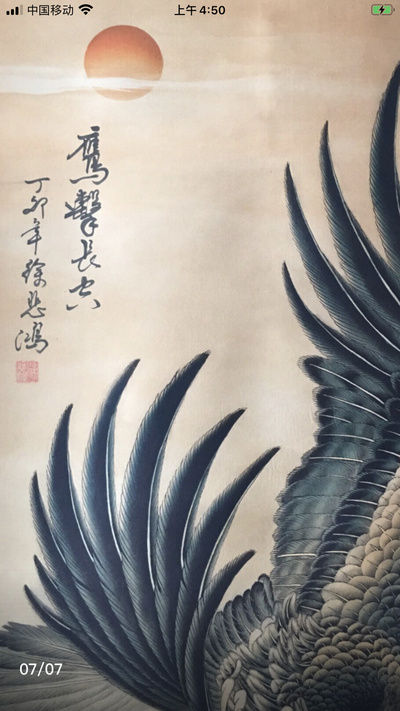 中国移动
上午4:50
鹰击长空
丁卯年徐悲鸿
07/07